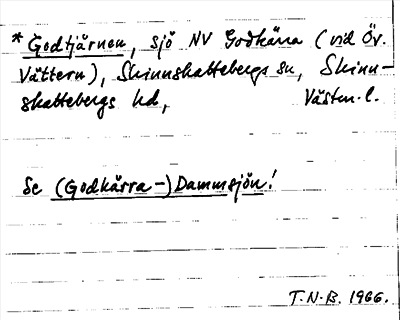 * Godtjärnen, sjö NV Godkärra (vid Öv.
Vättern), Skinnskattebergs sn, Skinn-
skattebergs hd, Västm. l.
Se (Godkärra-) Dammsjön!
T.N.B. 1966.